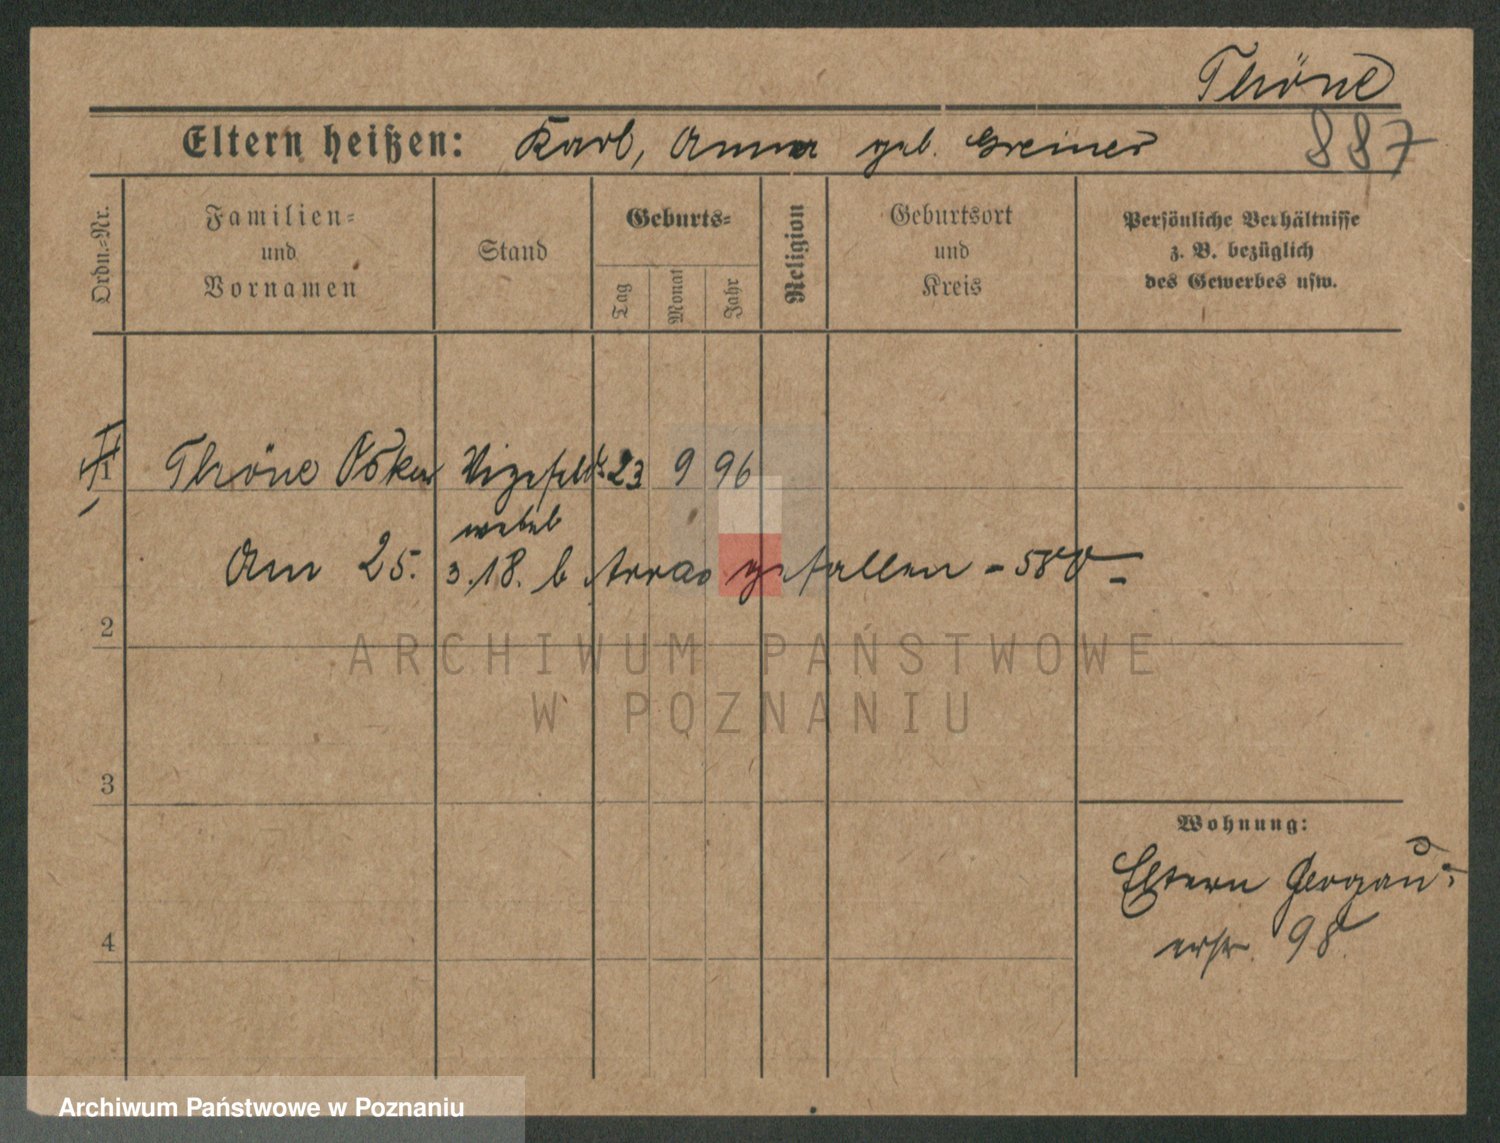 Thöne
Eltern heißen: Karl, Anna geb. Greiner 887
Ordn.=Nr.
Familien=
und
Vornamen
Stand
Geburts=
Tag
Monat
Jahr
Religion
Geburtsort
und
Kreis
Persönliche Verhältnisse
z. B. bezüglich
des Gewerbes usw.
1 Thöne Oskar Vizefeld= 23 9 96
webel
Am 25. 3. 18. b Arras gefallen
2
ARCHIWUM PAŃSTWOWE
W POZNANIU
3
Wohnung:
Eltern Glogau
4
98
Archiwum Państwowe w Poznaniu